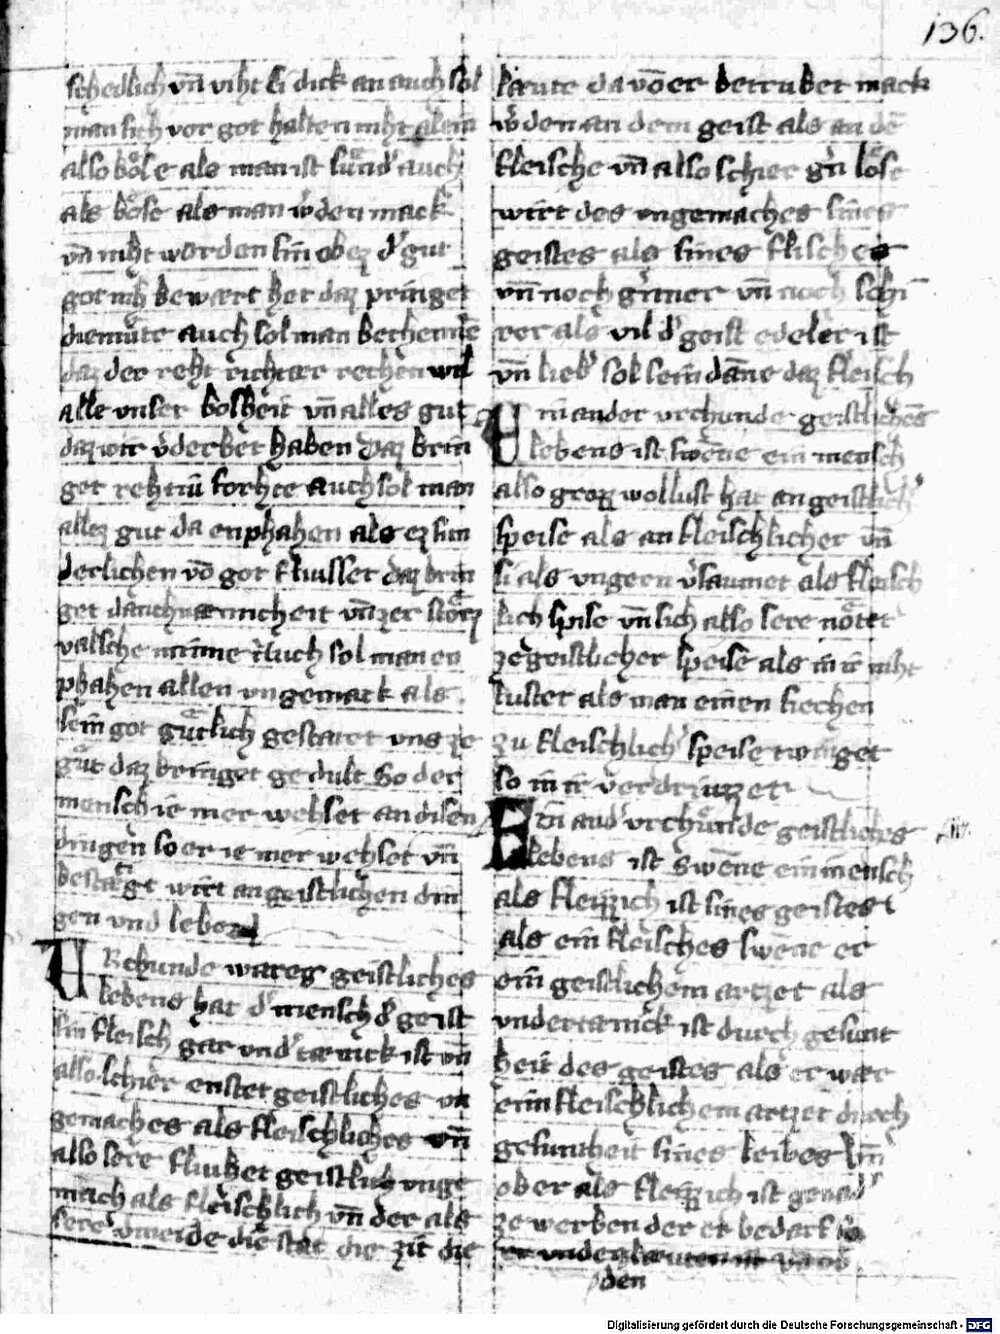 136.
schedlich vn̄ viht si dick an auch sol
man sich vor got halten niht allein
also bo̊se als man ist sund' auch
als bo̊se als man w'den mack
vn̄ niht worden sin ob ez d' gut
got niht bewart het daz pringet
diemůte auch sol man bechennē
daz der reht richter rechen wil
alle vnser bosheit vn̄ alles gut
daz wir v'derbet haben daz brin
get rehtiu forhte auch sol man
allez gut da enphahen als ez sun
derlichen vō got fluisset daz brin
get danchnæmicheit vn̄ zer sto̊rz
valsche minne Auch sol man en
phahen allen vngemack als
sein got gůtlich gestatet vns ze
gůt daz bringet gedult So der
mensch ie mer wehset an disen
dingen so er ie mer wehset vn̄
bestatigt wirt an geistlichen din
gen vnd leben
VRchunde wares geistliches
lebens hat d' mensch d' geist
sin fleisch gar vnd'tænick ist vn̄
also schier enstet geistliches vn
gemaches als fleischliches vn̄
also sere fluhet geistlich vnge
mach als fleischlich vn̄ der als
sere v'meide die stat die zit die
læute da vō er betrubet mack
w'den an dem geist als an dē
fleische vn̄ also schier g'n lo̊se
wirt des vngemaches sines
geistes als sines flisches
vn̄ noch g'nner vn̄ noch schi
rer als vil d' geist edeler ist
vn̄ lieb' sol sein dāne daz fleisch
Ein ander vrchunde geistliches
lebens ist swenne ein mensch
also grozz wollust hat an geistlich'
speise als an fleischlicher vn̄
si als vngern v'saumet als fleisch
lich spise vn̄ sich also sere no̊tet
ze geistlicher speise als in ir niht
lustet als man einen siechen
zu fleischlich' speise twinget
so in ir verdriuzzet
Ein and' vrchůnde geistliches
lebens ist swēne ein mensch
als fleizzich ist sines geistes
als ein fleisches swene er
eim geistlichem artzet als
vndertænick ist durch gesunt
heit des geistes als er wær
eim fleischlichem artzet durch
gesuntheit sines leibes
ober als fleizzich ist genad'
ze werben der er bedarf
den